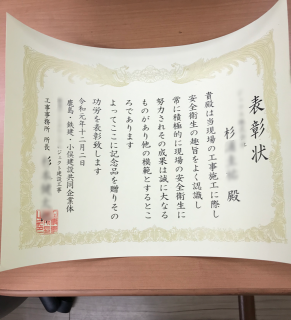 表彰状
杉
殿
貴殿は当現場の工事施工に際し
安全衛生の趣旨をよく認識し
常に積極的に現場の安全衛生に
努力されその成果は誠に大なる
ものがあり他の模範とするとこ
ろであります
よってここに記念品を贈りその
功労を表彰致します
令和元年十二月二日
鹿島・鉄建・小俣建設共同企業体
ジェクト建設工事
工事事務所 所長